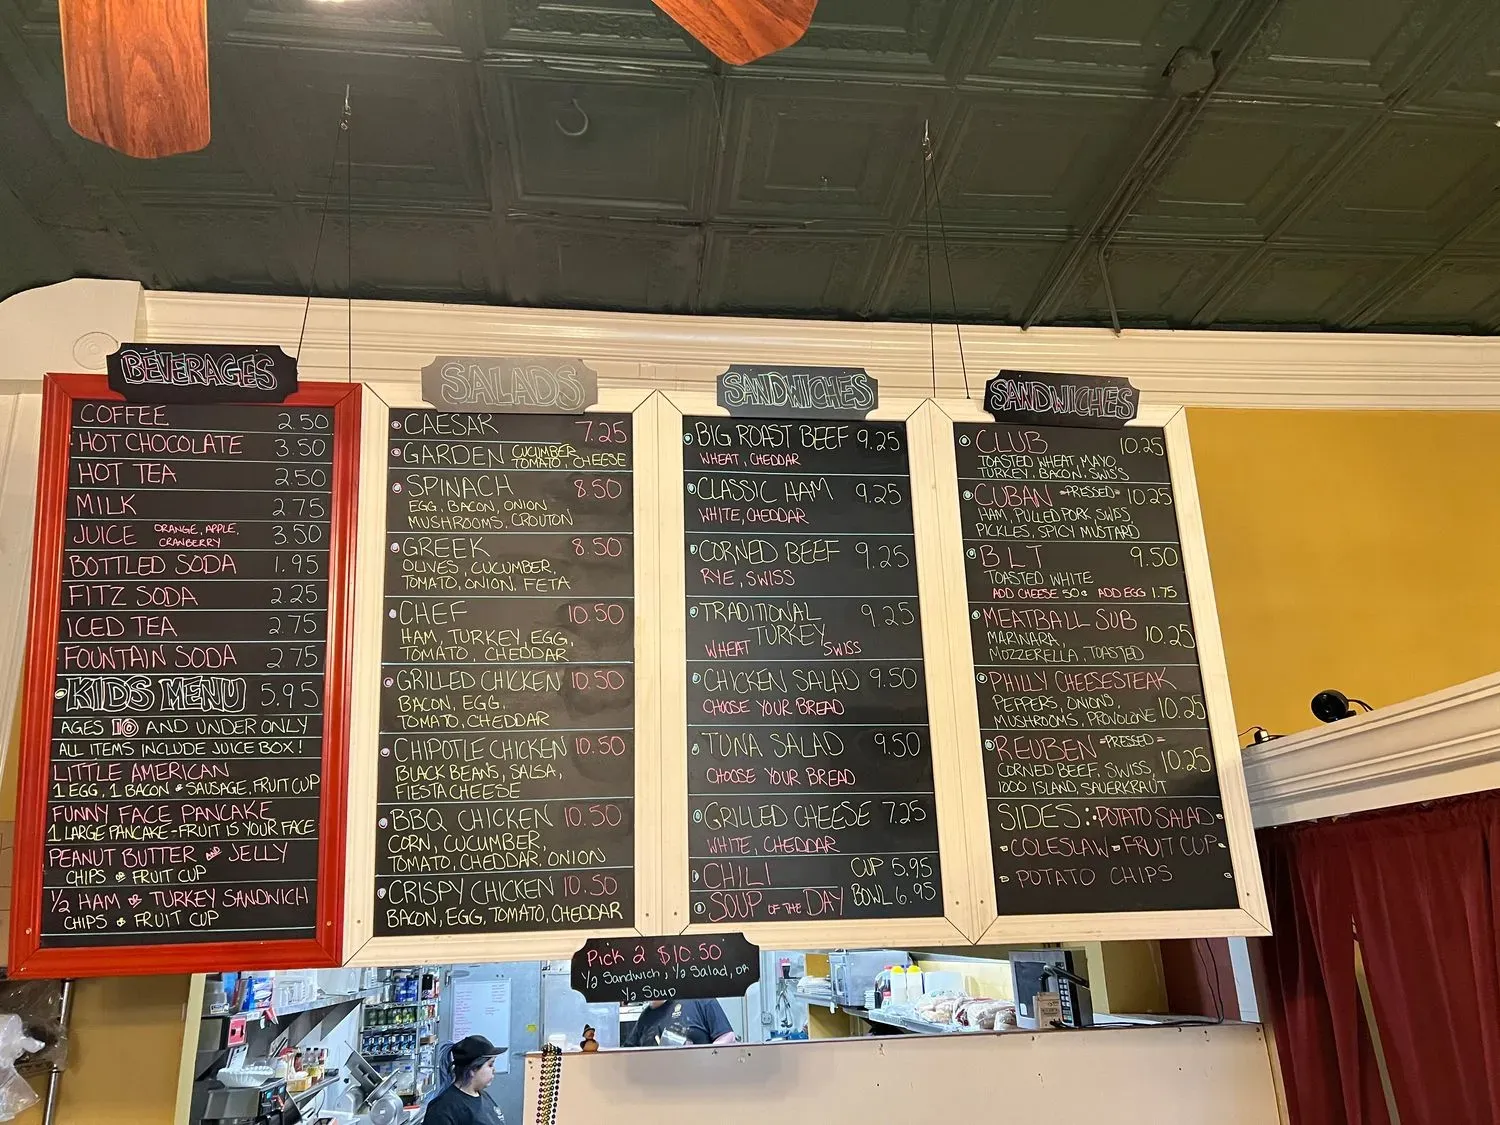 BEVERAGES
COFFEE 2.50
HOT CHOCOLATE 3.50
HOT TEA 2.50
MILK 2.75
JUICE ORANGE, APPLE, CRANBERRY 3.50
BOTTLED SODA 1.95
FITZ SODA 2.25
ICED TEA 2.75
FOUNTAIN SODA 2.75
KIDS MENU 5.95
AGES 10 AND UNDER ONLY
ALL ITEMS INCLUDE JUICE BOX!
LITTLE AMERICAN
1 EGG, 1 BACON & SAUSAGE, FRUIT CUP
FUNNY FACE PANCAKE
1 LARGE PANCAKE - FRUIT IS YOUR FACE
PEANUT BUTTER AND JELLY
CHIPS & FRUIT CUP
1/2 HAM & TURKEY SANDWICH
CHIPS & FRUIT CUP
SALADS
CAESAR 7.25
GARDEN CUCUMBER, TOMATO, CHEESE
SPINACH 8.50
EGG, BACON, ONION
MUSHROOMS, CROUTON
GREEK 8.50
OLIVES, CUCUMBER,
TOMATO, ONION, FETA
CHEF 10.50
HAM, TURKEY, EGG,
TOMATO, CHEDDAR
GRILLED CHICKEN 10.50
BACON, EGG,
TOMATO, CHEDDAR
CHIPOTLE CHICKEN 10.50
BLACK BEANS, SALSA,
FIESTA CHEESE
BBQ CHICKEN 10.50
CORN, CUCUMBER,
TOMATO, CHEDDAR, ONION
CRISPY CHICKEN 10.50
BACON, EGG, TOMATO, CHEDDAR
SANDWICHES
BIG ROAST BEEF 9.25
WHEAT, CHEDDAR
CLASSIC HAM 9.25
WHITE, CHEDDAR
CORNED BEEF 9.25
RYE, SWISS
TRADITIONAL 9.25
TURKEY
WHEAT SWISS
CHICKEN SALAD 9.50
CHOOSE YOUR BREAD
TUNA SALAD 9.50
CHOOSE YOUR BREAD
GRILLED CHEESE 7.25
WHITE, CHEDDAR
CHILI CUP 5.95
SOUP OF THE DAY BOWL 6.95
SANDWICHES
CLUB 10.25
TOASTED WHEAT, MAYO,
TURKEY, BACON, SWISS
CUBAN =PRESSED= 10.25
HAM, PULLED PORK, SWISS
PICKLES, SPICY MUSTARD
BLT 9.50
TOASTED WHITE
ADD CHEESE 50¢ ADD EGG 1.75
MEATBALL SUB 10.25
MARINARA,
MOZZERELLA, TOASTED
PHILLY CHEESESTEAK
PEPPERS, ONIONS,
MUSHROOMS, PROVOLONE 10.25
REUBEN =PRESSED= 10.25
CORNED BEEF, SWISS,
1000 ISLAND, SAUERKRAUT
SIDES: POTATO SALAD
COLESLAW FRUIT CUP
POTATO CHIPS
Pick 2 $10.50
1/2 Sandwich, 1/2 Salad, OR
1/2 Soup